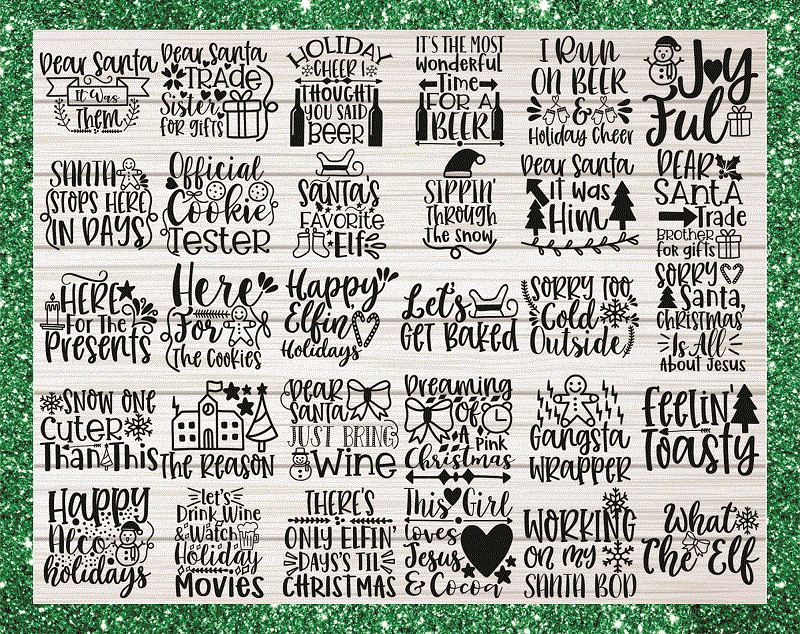 Dear Santa
It Was
Them
Dear Santa
Trade
Sister
for gifts
Holiday
Cheer I
Thought
You Said
Beer
It's the most
Wonderful
Time
For a
Beer
I Run
on Beer
&
Holiday Cheer
Joy
Ful
Santa
Stops Here
In Days
Official
Cookie
Tester
Santa's
Favorite
Elf
Sippin'
Through
The Snow
Dear Santa
it was
Him
Dear
Santa
Trade
Brother
for gifts
Here
For The
Presents
Here
For
The Cookies
Happy
Elfin'
Holidays
Let's
Get Baked
Sorry Too
Cold
Outside
Sorry
Santa,
Christmas
Is All
About Jesus
Snow One
Cuter
Than This
The Reason
Dear
Santa
Just Bring
Wine
Dreaming
Of
A Pink
Christmas
Gangsta
Wrapper
Feelin'
Toasty
Happy
Neco
holidays
Let's
Drink Wine
& Watch
Holiday
Movies
There's
Only Elfin'
Days's Til
Christmas
This Girl
loves
Jesus
& Cocoa
Working
on my
Santa Bod
What
The Elf